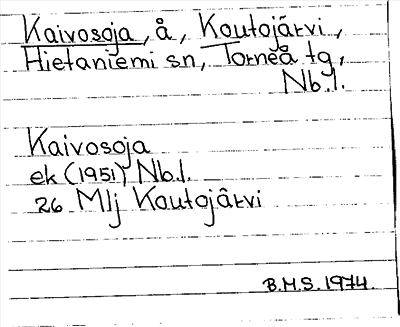 Kaivosoja, å, Koutojärvi,
Hietaniemi sn, Torneå tg,
Nb.l.
Kaivosoja
ek (1951) Nb.l.
26 MIj Koutojärvi
B.M.S. 1974.